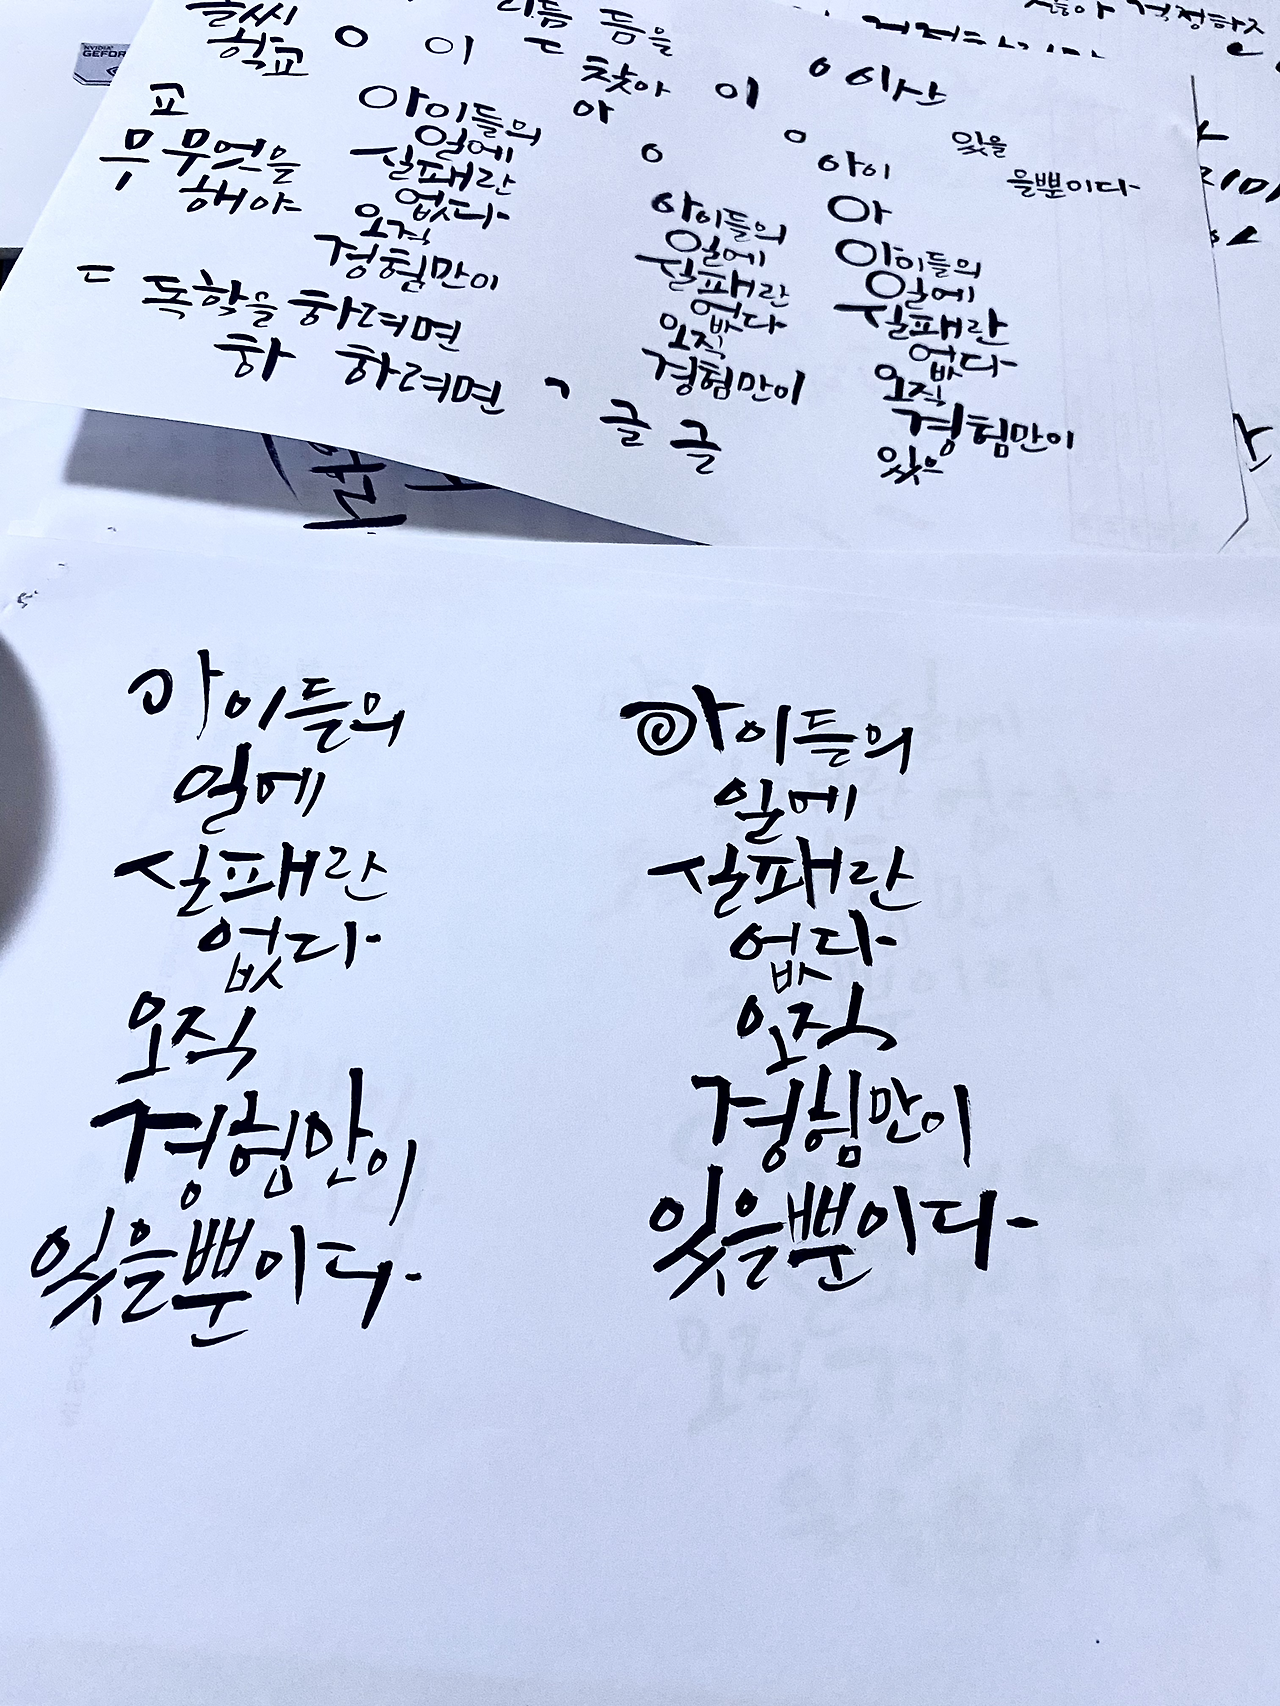 NVIDIA
글씨
학교
ㅇ 이 ㄷ
리듬 듬을
찾아 이
ㅇ 이사
걱정하지
교
무 무엇을
해야
아이들의
일에
실패란
없다
오직
경험만이
아
ㅇ
아이들의
일에
실패란
없다
오직
경험만이
ㅇ
아이
아
아이들의
일에
실패란
없다
오직
경험만이
있으
있을
을뿐이다
ㄷ 독학을 하려면
하 하려면 ㄱ 글 글
아이들의
일에
실패란
없다
오직
경험만이
있을뿐이다
아이들의
일에
실패란
없다
오직
경험만이
있을뿐이다